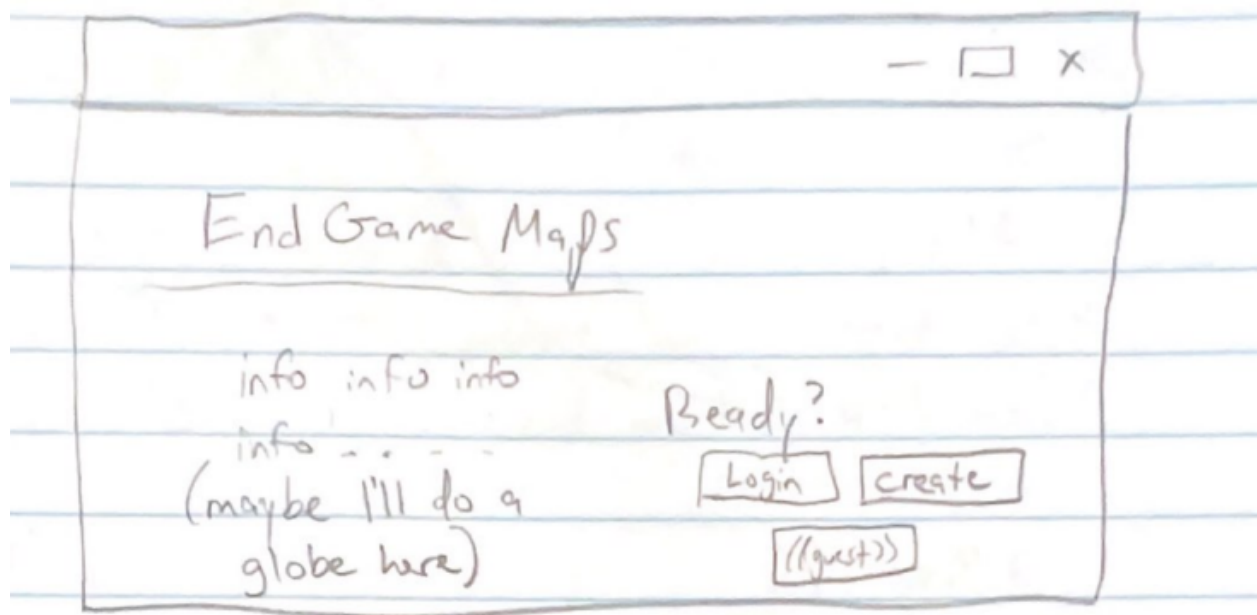 End Game Maps
info info info
info .....
(maybe I'll do a
globe here)
Ready?
Login create
((guest))